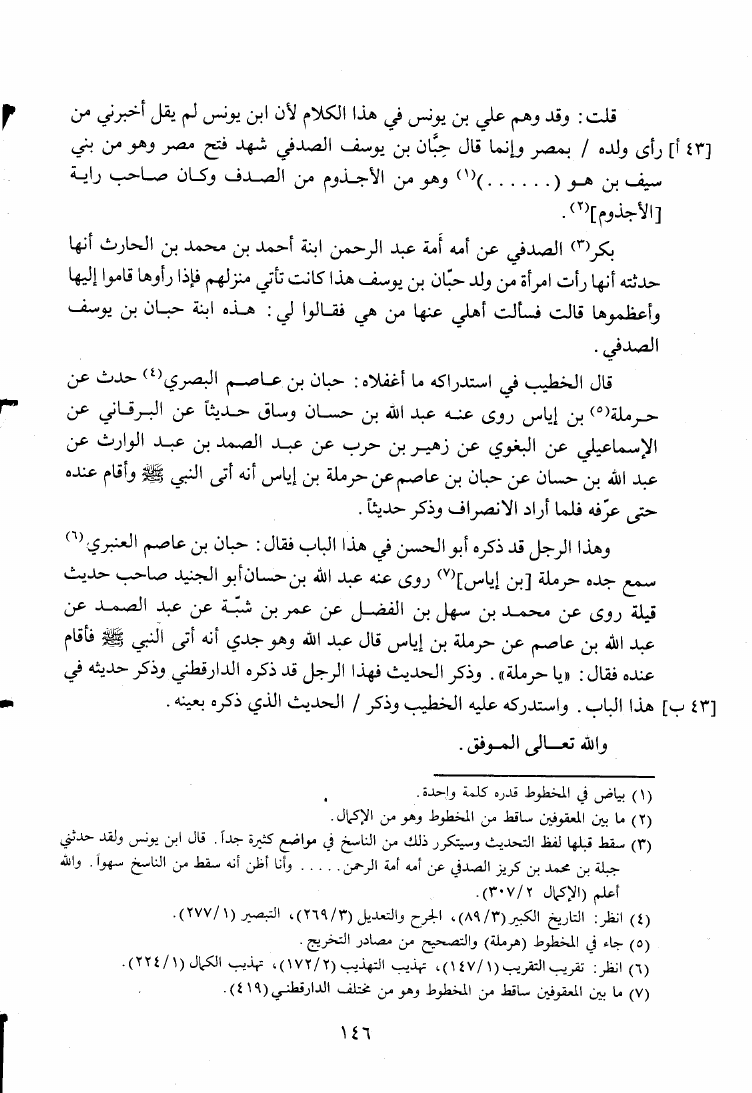 قلت: وقد وهم علي بن يونس في هذا الكلام لأن ابن يونس لم يقل أخبرني من
[٤٣ أ] رأى ولده / بمصر وإنما قال حِبَّان بن يوسف الصدفي شهد فتح مصر وهو من بني
سيف بن هو (......)(١) وهو من الأجذوم من الصدف وكان صاحب راية
[الأجذوم](٢).
بكر(٣) الصدفي عن أمه أَمة عبد الرحمن ابنة أحمد بن محمد بن الحارث أنها
حدثته أنها رأت امرأة من ولد حبّان بن يوسف هذا كانت تأتي منزلهم فإذا رأوها قاموا إليها
وأعظموها قالت فسألت أهلي عنها من هي فقالوا لي: هذه ابنة حبان بن يوسف
الصدفي.
قال الخطيب في استدراكه ما أغفلاه: حبان بن عاصم البصري(٤) حدث عن
حرملة(٥) بن إياس روى عنه عبد الله بن حسان وساق حديثاً عن البرقاني عن
الإسماعيلي عن البغوي عن زهير بن حرب عن عبد الصمد بن عبد الوارث عن
عبد الله بن حسان عن حبان بن عاصم عن حرملة بن إياس أنه أتى النبي ﷺ وأقام عنده
حتى عرّفه فلما أراد الانصراف وذكر حديثاً.
وهذا الرجل قد ذكره أبو الحسن في هذا الباب فقال: حبان بن عاصم العنبري(٦)
سمع جده حرملة [بن إياس](٧) روى عنه عبد الله بن حسان أبو الجنيد صاحب حديث
قيلة روى عن محمد بن سهل بن الفضل عن عمر بن شبّة عن عبد الصمد عن
عبد الله بن عاصم عن حرملة بن إياس قال عبد الله وهو جدي أنه أتى النبي ﷺ فأقام
عنده فقال: «يا حرملة». وذكر الحديث فهذا الرجل قد ذكره الدارقطني وذكر حديثه في
[٤٣ ب] هذا الباب. واستدركه عليه الخطيب وذكر / الحديث الذي ذكره بعينه.
والله تعالى الموفق.
(١) بياض في المخطوط قدره كلمة واحدة.
(٢) ما بين المعقوفين ساقط من المخطوط وهو من الإكمال.
(٣) سقط قبلها لفظ التحديث وسيتكرر ذلك من الناسخ في مواضع كثيرة جداً. قال ابن يونس ولقد حدثني
جبلة بن محمد بن كريز الصدفي عن أمه أمة الرحمن..... وأنا أظن أنه سقط من الناسخ سهواً. والله
أعلم (الإكمال ٣٠٧/٢).
(٤) انظر: التاريخ الكبير (٨٩/٣)، الجرح والتعديل (٢٦٩/٣)، التبصير (٢٧٧/١).
(٥) جاء في المخطوط (هرملة) والتصحيح من مصادر التخريج.
(٦) انظر: تقريب التقريب (١٤٧/١)، تهذيب التهذيب (١٧٢/٢)، تهذيب الكمال (٢٢٤/١).
(٧) ما بين المعقوفين ساقط من المخطوط وهو من مختلف الدارقطني (٤١٩).
١٤٦